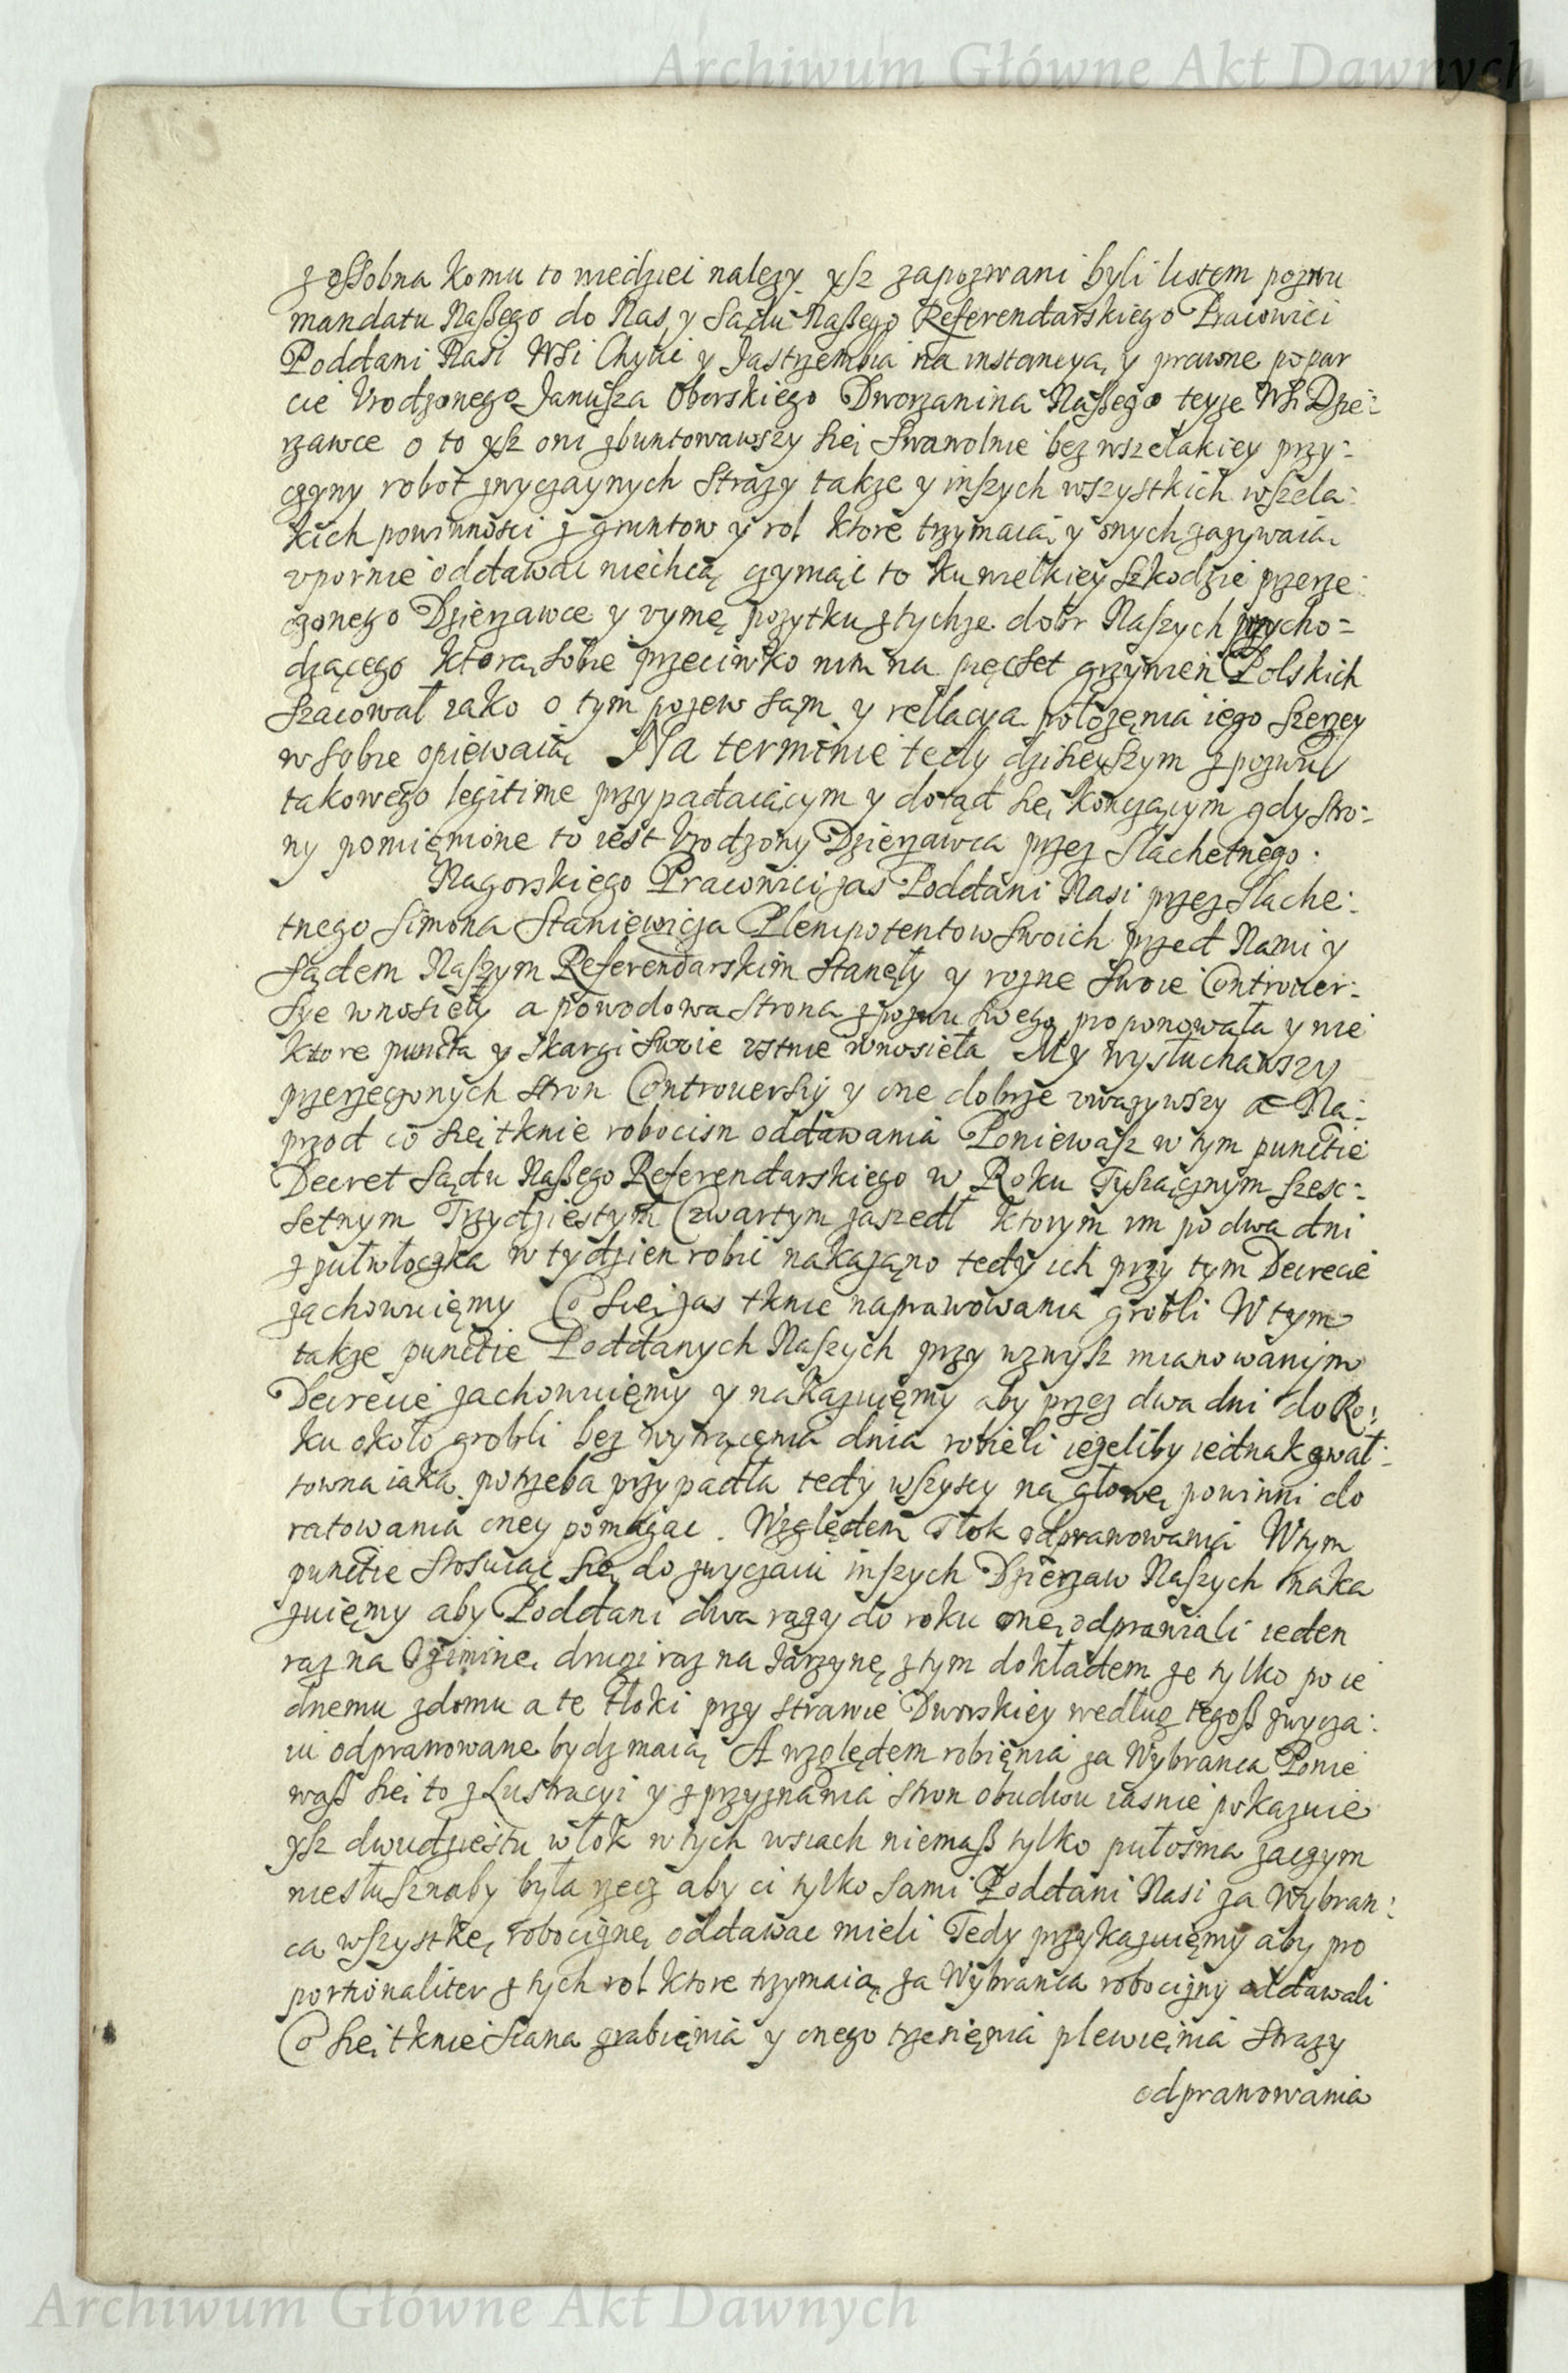 Archiwum Główne Akt Dawnych
z ossobna komu to wiedziei nalezy ysz zapozwani byli listem pozwu
mandatu Naßego do Nas y Sądu Naßego Referendarskiego Pracowici
Poddani Nasi Wsi Chyki y Jastrzembia na instancyą y prawne popar
cie Vrodzonego Janusza Oborskiego Dworzanina Naßego teyze Wsi Dzie:
rzawce o to ysz oni zbuntowawszy się swawolnie bez wszelakiey przy:
czyny robot zwyczaynych Strazy takze y inszych wszystkich wszela:
kich powinnosci z gruntow y rol ktore trzymaią y onych zazywaią
vpornie oddawac niechcą czymąc to ku wielkiey szkodzie przerze:
czonego Dzierzawce y vymę pozytku z tychze dobr Naszych przycho=
dzącego ktorą sobie przeciwko nim na pięcset grzywien Polskich
szacował iako o tym pozew sąm y rellacya połozęnia iego szerzey
w sobie opiewaią Na terminie tedy dzisieyszym z pozwu
takowego legitime przypadaiącym y dotąd się konczącym gdy stro:
ny pomięnione to iest Vrodzony Dzierzawca przez Slachetnego:
Nagorskiego Pracowici zas Poddani Nasi przez Slache:
tnego Simona Staniewicza Plenipotentow swoich przed Nami y
Sądem Naszym Referendarskim stanęły y rozne swoie Controuer:
sye wnosieły a powodowa strona z pozwu swego proponowała y nie
ktore puncta y skargi swoie vstnie wnosieła My wysłuchawszy
przerzeczonych stron Controuersiy y one dobrze vwazywszy a Na:
przod co się tknie robocisn oddawania Poniewasz w tym punctie
Decret Sądu Naßego Referendarskiego w Roku Tysiącznym szesc:
setnym Trzydziestym Czwartym zaszedł ktorym im po dwa dni
z pułwłoczka w tydzien robic nakaząno tedy ich przy tym Decrecie
zachowuięmy Co się zas tknie naprawowania grobli W tym
takze punctie Poddanych Naszych przy wzwysz mianowanym
Decrecie zachowuięmy y nakazuięmy aby przez dwa dni do Ro:
ku około grobli bez wytrącęnia dnia robieli iezeliby iednak gwał:
towna iaka potrzeba przypadła tedy wszyscy na głowę powinni do
ratowania oney pomagac. Względem Tłok odprawowania W tym
punctie stosuiąc się do zwyczaiu inszych Dzierzaw Naszych naka
zuięmy aby Poddani dwa razy do roku onę odprawiali ieden
raz na Oziminę drugi raz na Jarzynę z tym dokładem ze tylko po ie
dnemu z domu a te tłoki przy strawie Dworskiey według tegoß zwycza:
iu odprawowane bydz maią A względem robięnia za Wybranca Ponie
waß się to z Lustracyi y z przyznania stron obudwu iasnie pokazuie
ysz dwudziestu włok w tych wsiach niemaß tylko pułosma zaczym
niesłusznaby była rzecz aby ci tylko sami Poddani Nasi za Wybran:
ca wszystkę robociznę oddawac mieli Tedy przykazuięmy aby pro
portionaliter z tych rol ktore trzymaią za Wybranca robocizny oddawali
Co się tknie Siana grabięnia y onego trzesięnia plewieęnia Strazy
odprawowania
Archiwum Główne Akt Dawnych